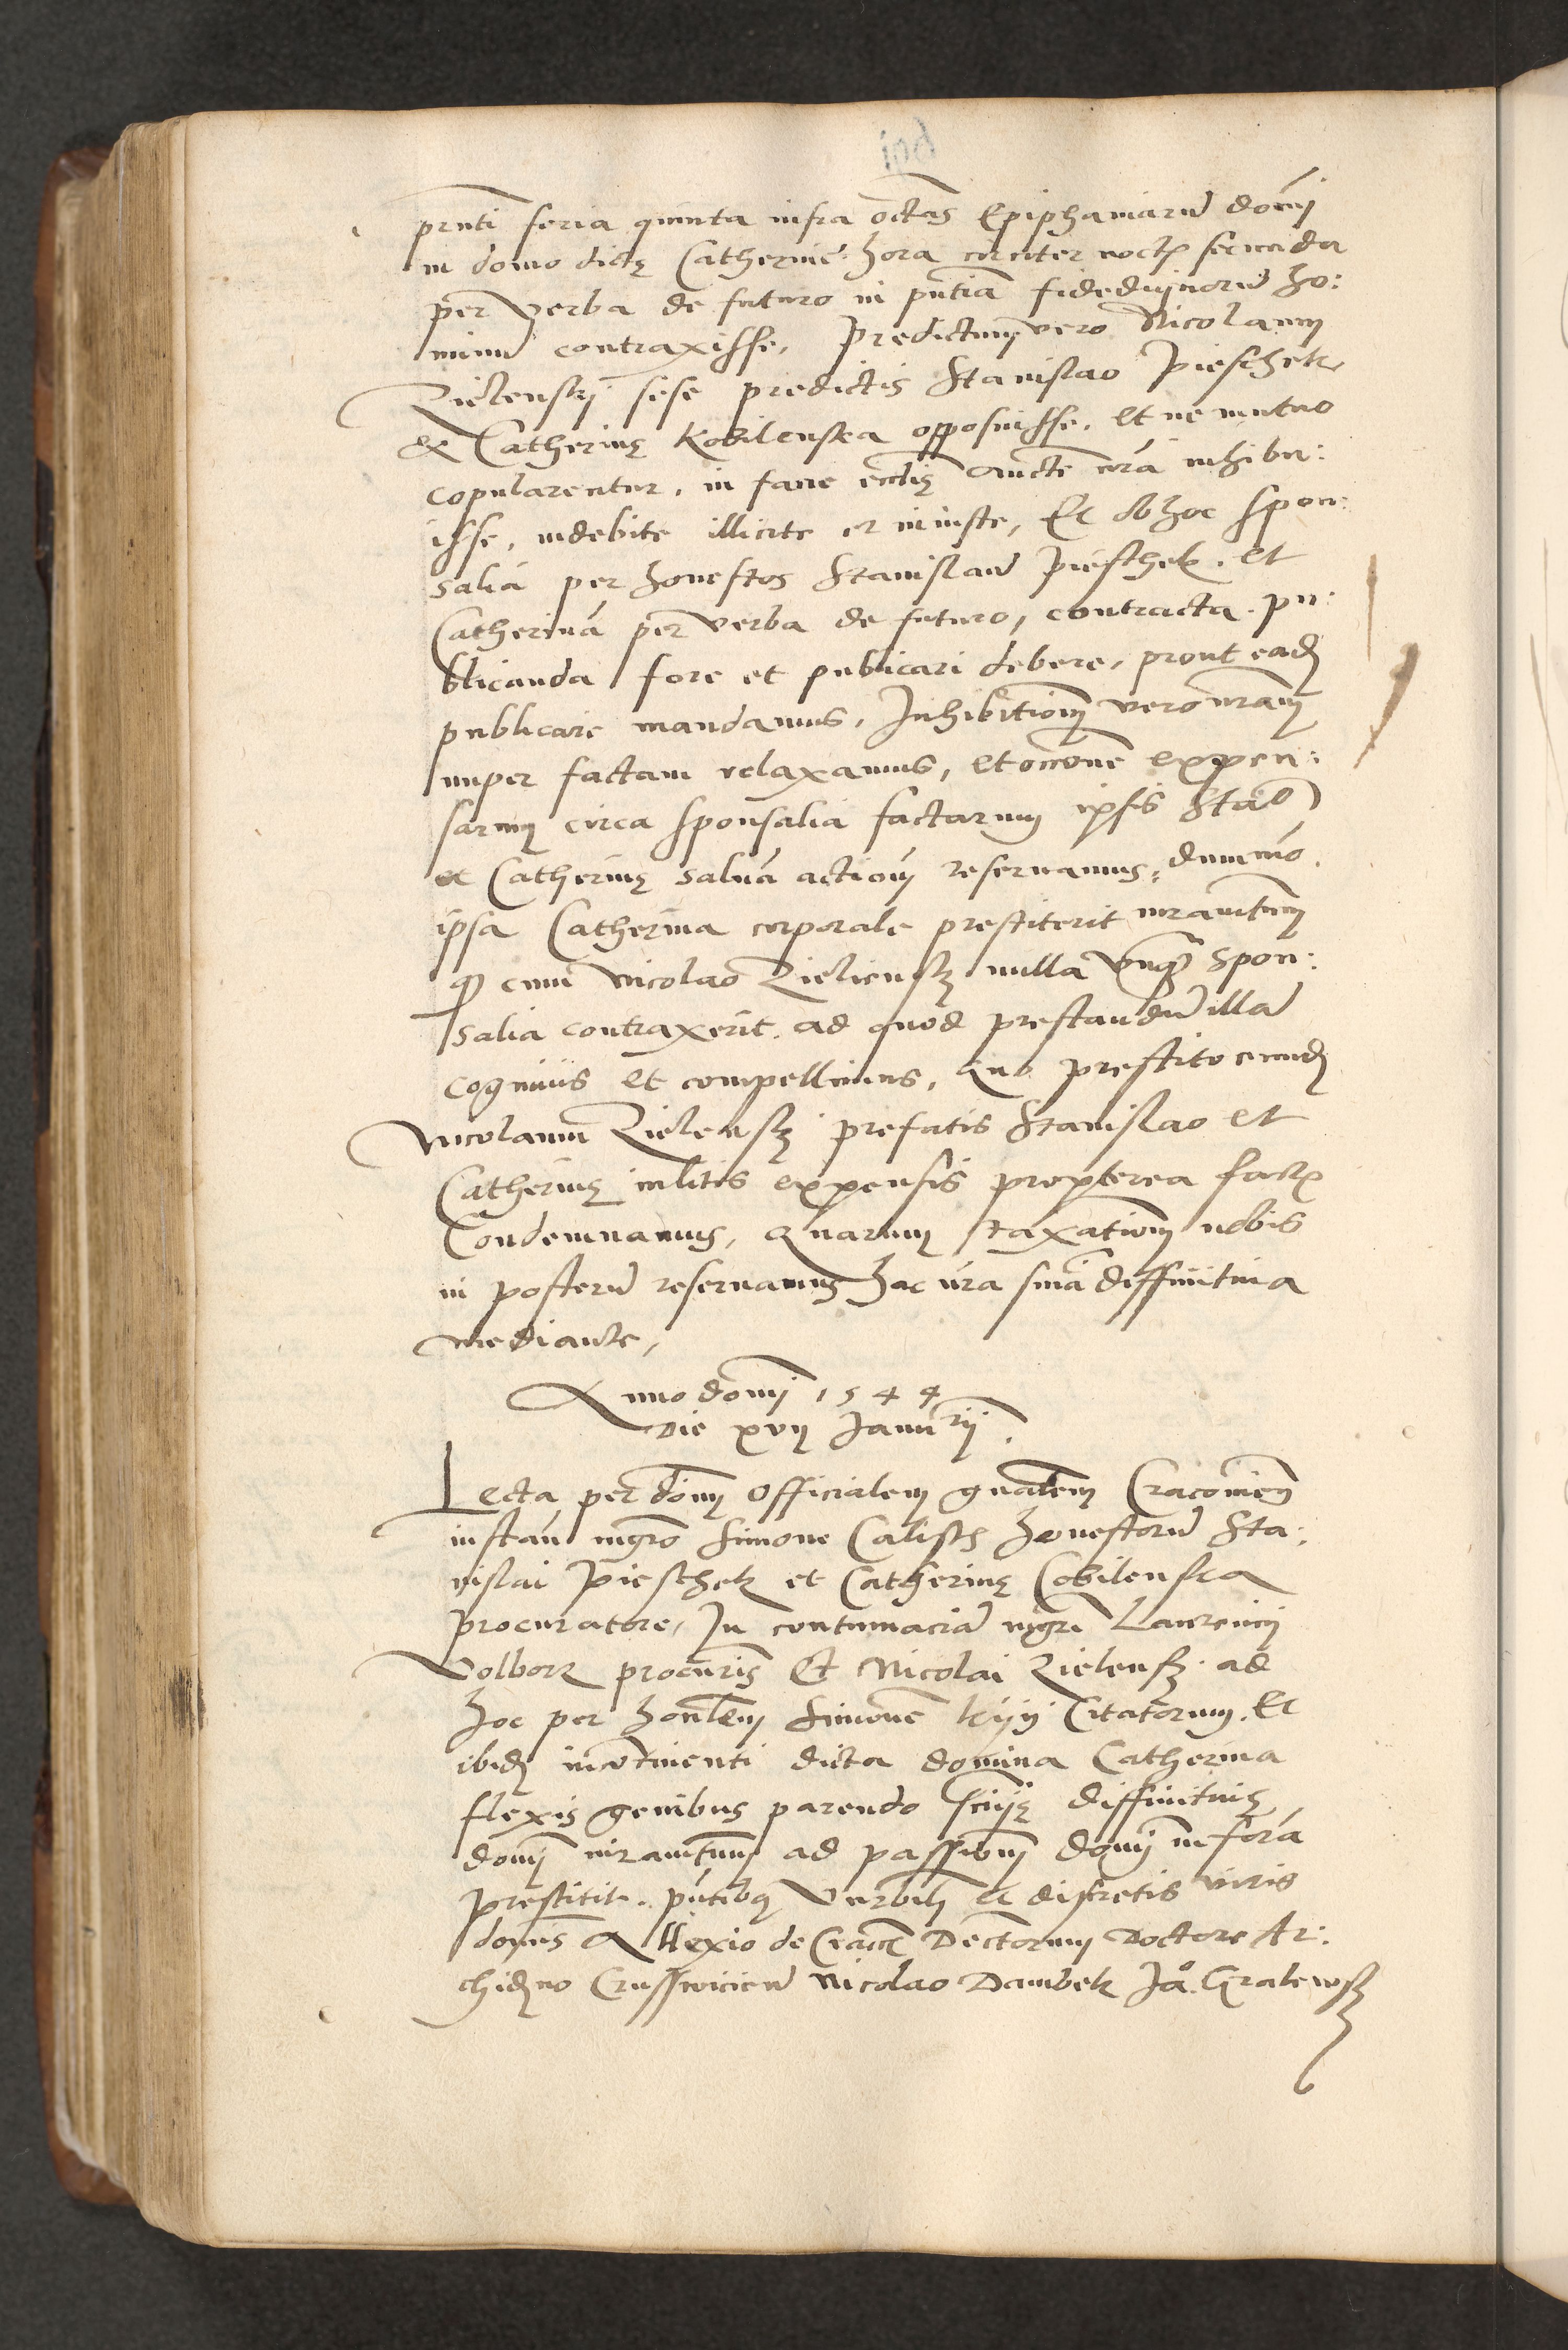 prnti feria quinta infra octas Epiphaniarū domī
in domo dictę Catherinę hora circiter noctis secunda
per verba de futuro in pn̄tia fidedignorū ho:
minū contraxisse, predictum vero Nicolaum
Zielenskij sese predictis Stanislao Pieschek
et Catherinę Kobilenska opposuisse, et ne mutuo
copularentur, in facie ecclīę auctē nr̄a inhibu:
isse, indebite illicite et iniuste, Et ob hoc spon:
salia per honestos Stanislaū Pieschek et
Catherinā per verba de futuro, contracta pu:
blicanda fore et publicari debere, prout eadē
publicare mandamus, Inhibitionem vero nr̄am
nuper factam relaxamus, et occōne expen:
sarum circa sponsalia factarum ipsis Stāo
et Catherinę saluā actionē reseruamus, dummō
ipsa Catherina corporale prestiterit iuramtum
q cum Nicolao Zielienskj nulla vnqȝ spon:
salia contraxerit, ad quod prestandū illā
cogimus et compellimus, Quo prestito eundē
Nicolaum Zielenskj prefatis Stanislao et
Catherinę in litis expensis propterea factis
Condemnamus, Quarum taxationem nobis
in posterū reseruamus hac nr̄a sniā deffinitiua
mediante,
Anno domī 1544
Die xvij Januarij.
Lecta per domī Officialem gnālem Cracouien
instan mgrō Simone Calisch honestorū Sta:
nislai Pieschek et Catherinę Cobilensca
procuratore, In contumaciā mgrī Laurencij
Volborz procuris Et Nicolai Zielenskj ad
hoc per honlem Simonē Kijij Citatorum, Et
ibidē incontinenti dicta domina Catherina
flexis genibus parendo sniję diffinitiuę
domī iuramtum ad passionē domī in forā
prestitit, pn̄tibȝ Venbilī et discretis viris
domīs Allexio de Crac Dectorum Doctore Ar:
chidno Crusswicien Nicolao Dambek Ja. Gralewskj